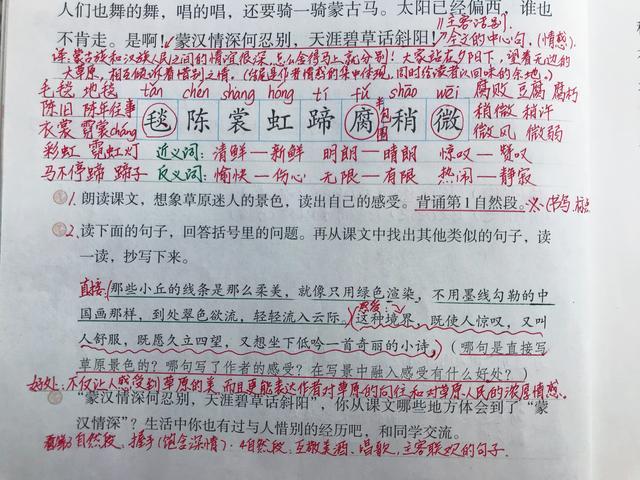 人们也舞的舞，唱的唱，还要骑一骑蒙古马。太阳已经偏西，谁也
不肯走。是啊！蒙汉情深何忍别，天涯碧草话斜阳！
主客话别。
全文的中心句。(情感)
译:蒙古族和汉族人民之间的情谊很深，怎么舍得马上就分别！大家站在夕阳下，望着无边的
大草原，相互倾诉着惜别之情。
毛毯 地毯 tǎn chén shang hóng tí fǔ shāo wēi 腐败 豆腐 腐朽
陈旧 陈年往事 毯 陈 裳 虹 蹄 腐 稍 微 稍微 稍许
半包围
衣裳 霓裳cháng 微风 微弱
彩虹 霓虹灯 近义词: 清鲜—新鲜 明朗—晴朗 惊叹—赞叹
马不停蹄 蹄子 反义词: 愉快—伤心 无限—有限 热闹—静寂
1. 朗读课文，想象草原迷人的景色，读出自己的感受。背诵第1自然段。
2. 读下面的句子，回答括号里的问题。再从课文中找出其他类似的句子，读
一读，抄写下来。
直接: 那些小丘的线条是那么柔美，就像只用绿色渲染，不用墨线勾勒的中
国画那样，到处翠色欲流，轻轻流入云际。这种境界，既使人惊叹，又叫
人舒服，既愿久立四望，又想坐下低吟一首奇丽的小诗。（哪句是直接写
草原景色的？哪句写了作者的感受？在写景中融入感受有什么好处？）
好处:不仅让人感受到草原的美，而且更能表达作者对草原的向往和对草原人民的浓厚情感。
“蒙汉情深何忍别，天涯碧草话斜阳”，你从课文哪些地方体会到了“蒙
汉情深”？生活中你也有过与人惜别的经历吧，和同学交流。
自然段，握手(饱含深情)．4自然段，互敬美酒、唱歌，主客联欢的句子．